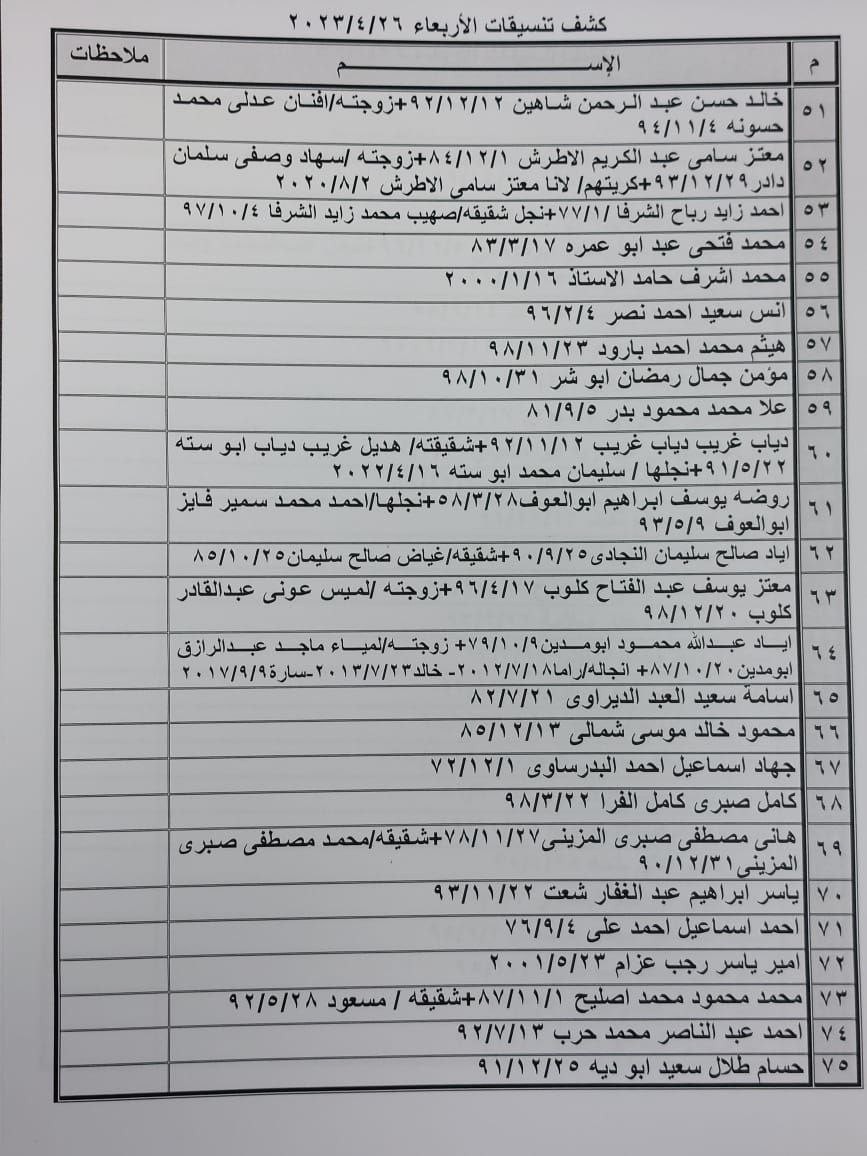 كشف تنسيقات الأربعاء ٢٠٢٣/٤/٢٦
م الإســـــــم ملاحظات
٥١ خالد حسن عبد الرحمن شاهين ٩٢/١٢/١٢+زوجته/افنان عدلى محمد
حسونه ٩٤/١١/٤
٥٢ معتز سامى عبد الكريم الاطرش ٨٤/١٢/١+زوجته /سهاد وصفى سلمان
دادر٩٣/١٢/٢٩+كريتهم/ لانا معتز سامى الاطرش ٢٠٢٠/٨/٢
٥٣ احمد زايد رباح الشرفا /٧٧/١+نجل شقيقه/صهيب محمد زايد الشرفا ٩٧/١٠/٤
٥٤ محمد فتحى عبد ابو عمره ٨٣/٣/١٧
٥٥ محمد اشرف حامد الاستاذ ٢٠٠٠/١/١٦
٥٦ انس سعيد احمد نصر ٩٦/٢/٤
٥٧ هيثم محمد احمد بارود ٩٨/١١/٢٣
٥٨ مؤمن جمال رمضان ابو شر ٩٨/١٠/٣١
٥٩ علا محمد محمود بدر ٨١/٩/٥
٦٠ دياب غريب دياب غريب ٩٢/١١/١٢+شقيقته/ هديل غريب دياب ابو سته
٩١/٥/٢٢+نجلها / سليمان محمد ابو سته ٢٠٢٢/٤/١٦
٦١ روضه يوسف ابراهيم ابوالعوف٥٨/٣/٢٨+نجلها/احمد محمد سمير فايز
ابوالعوف ٩٣/٥/٩
٦٢ اياد صالح سليمان النجادى٩٠/٩/٢٥+شقيقه/غياض صالح سليمان٨٥/١٠/٢٥
٦٣ معتز يوسف عبد الفتاح كلوب ٩٦/٤/١٧+زوجته /لميس عونى عبدالقادر
كلوب ٩٨/١٢/٢٠
٦٤ اياد عبدالله محمود ابومدين٧٩/١٠/٩+ زوجته/لمياء ماجد عبدالرازق
ابومدين٨٧/١٠/٢٠+ انجاله/راما٢٠١٢/٧/١٨- خالد٢٠١٣/٧/٢٣-سارة٢٠١٧/٩/٩
٦٥ اسامة سعيد العبد الديراوى ٨٢/٧/٢١
٦٦ محمود خالد موسى شمالى ٨٥/١٢/١٣
٦٧ جهاد اسماعيل احمد البدرساوى ٧٢/١٢/١
٦٨ كامل صبرى كامل الفرا ٩٨/٣/٢٢
٦٩ هانى مصطفى صبرى المزينى٧٨/١١/٢٧+شقيقه/محمد مصطفى صبرى
المزينى٩٠/١٢/٣١
٧٠ ياسر ابراهيم عبد الغفار شعت ٩٣/١١/٢٢
٧١ احمد اسماعيل احمد على ٧٦/٩/٤
٧٢ امير ياسر رجب عزام ٢٠٠١/٥/٢٣
٧٣ محمد محمود محمد اصليح ٨٧/١١/١+شقيقه / مسعود ٩٢/٥/٢٨
٧٤ احمد عبد الناصر محمد حرب ٩٢/٧/١٣
٧٥ حسام طلال سعيد ابو ديه ٩١/١٢/٢٥